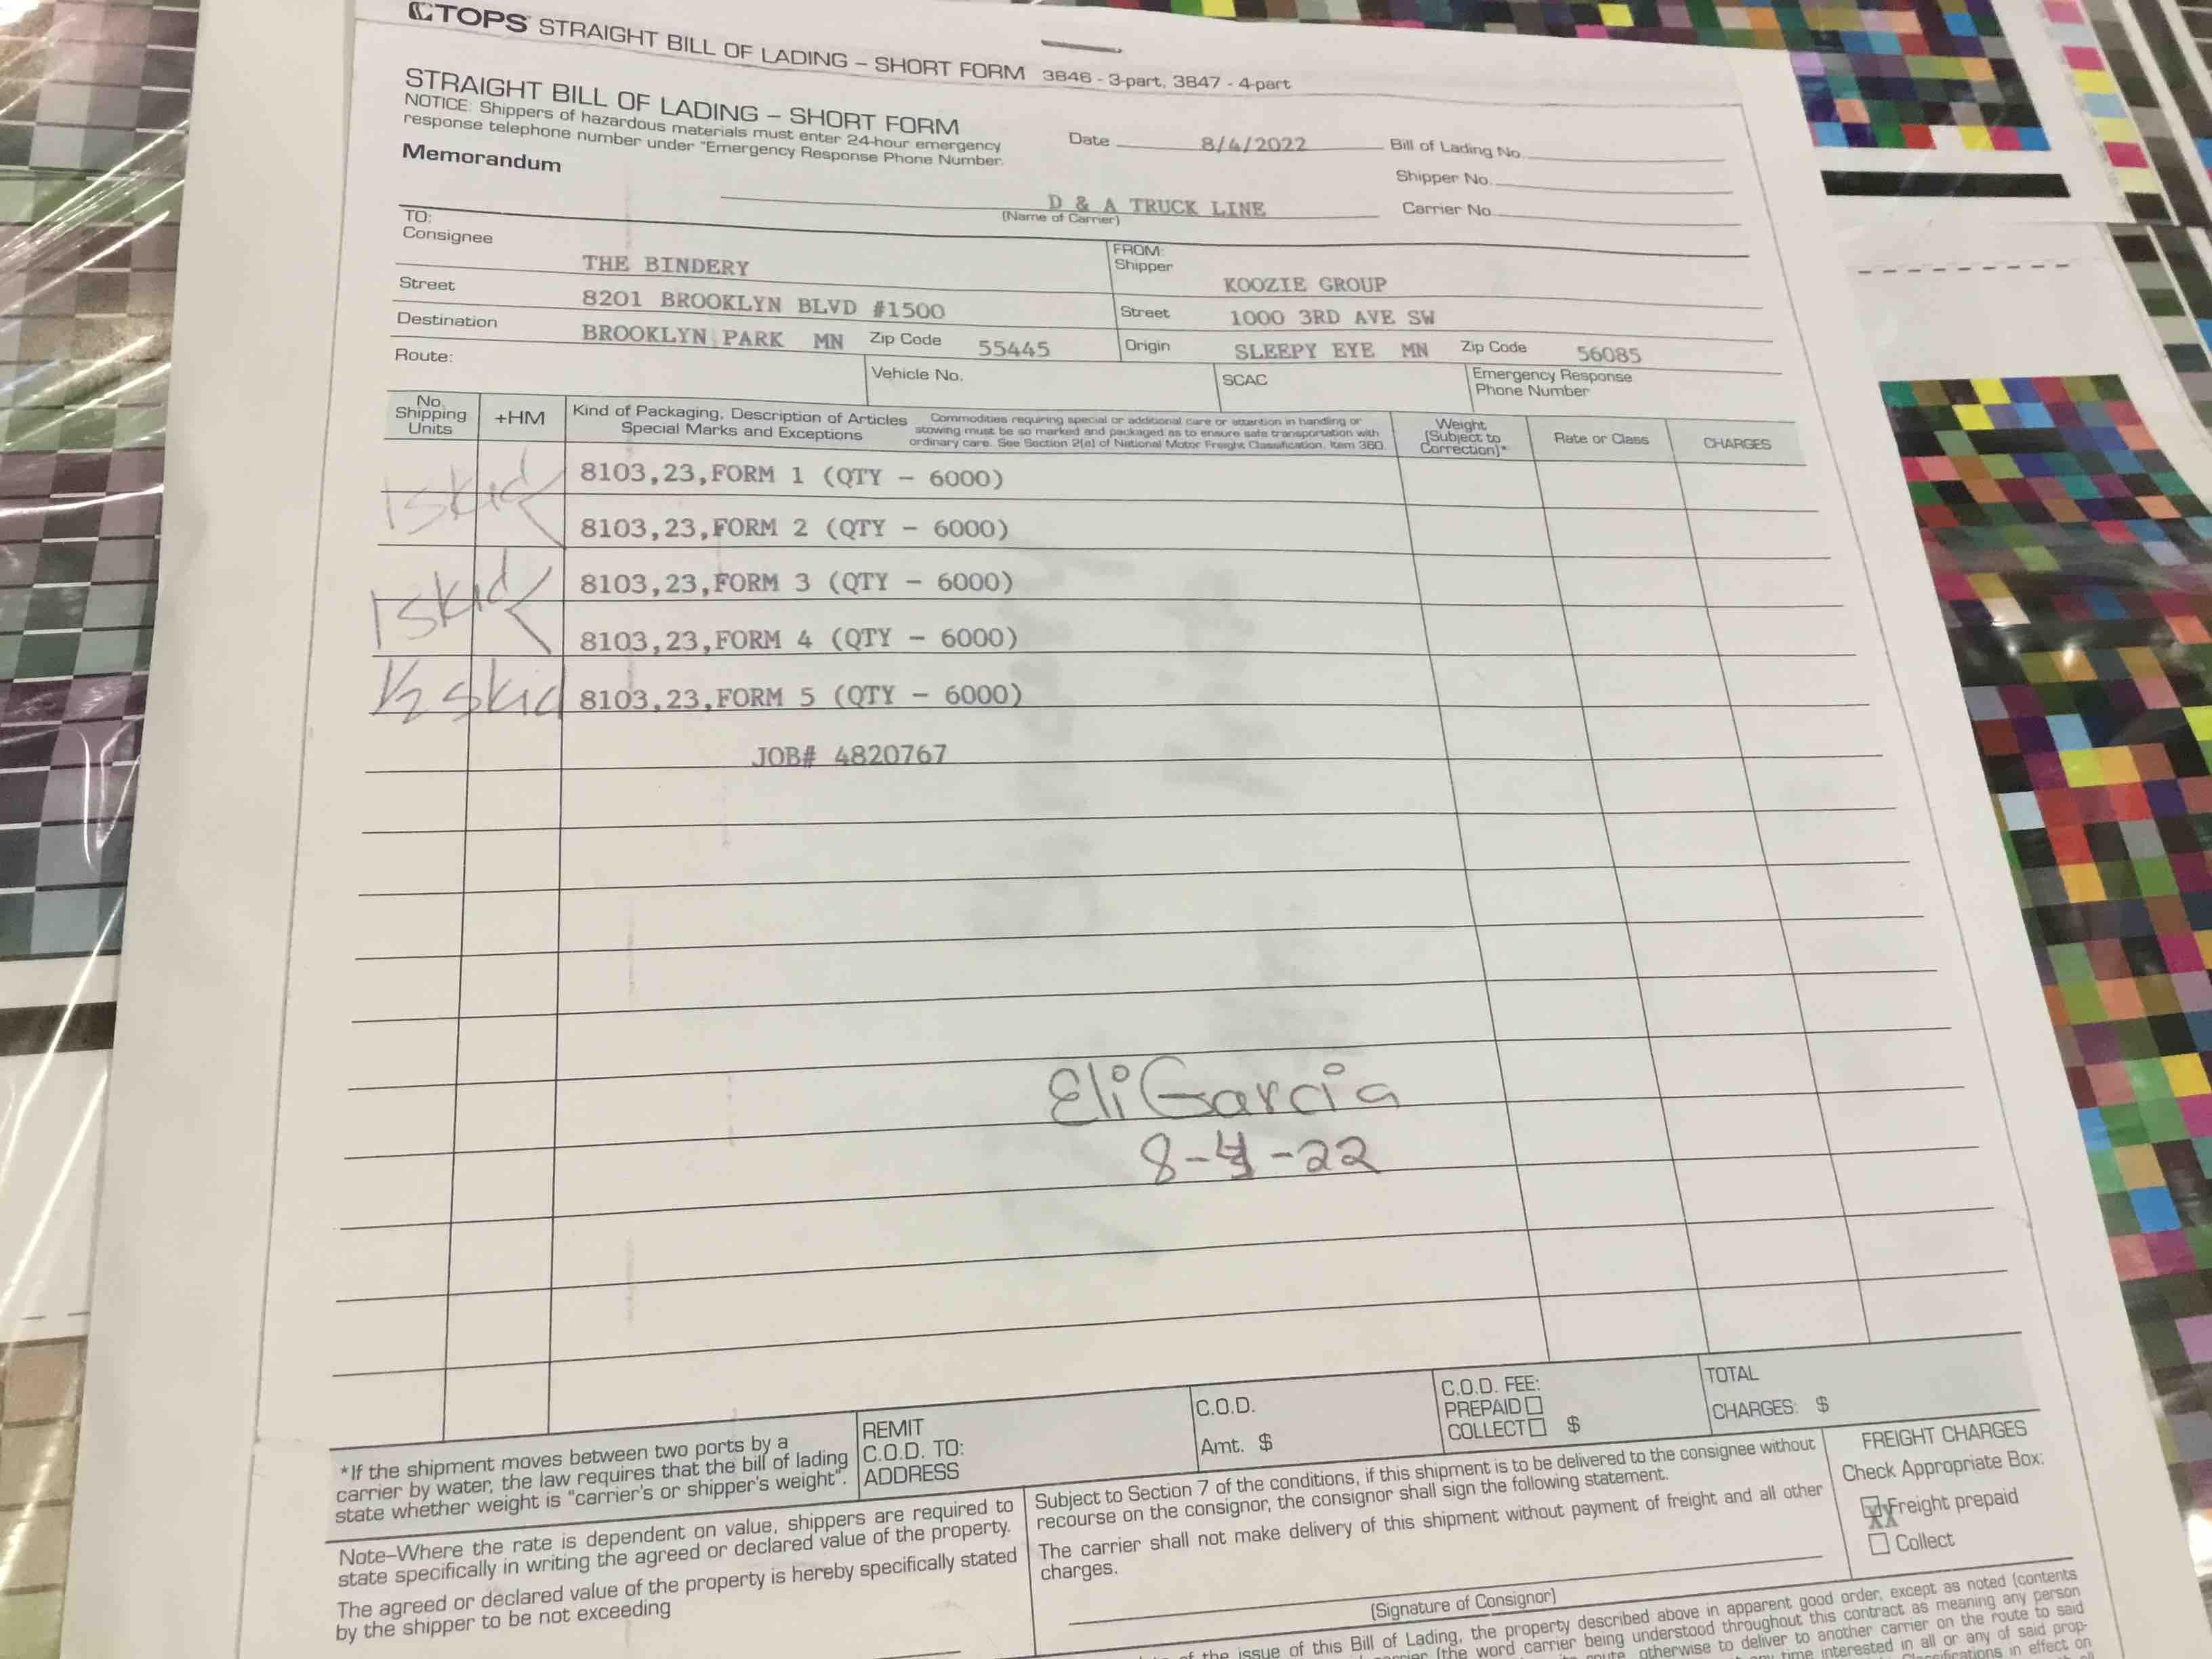 TOPS STRAIGHT BILL OF LADING – SHORT FORM 3846 - 3-part, 3847 - 4-part
STRAIGHT BILL OF LADING – SHORT FORM
NOTICE: Shippers of hazardous materials must enter 24-hour emergency
response telephone number under "Emergency Response Phone Number.
Memorandum
Date 8/4/2022
Bill of Lading No.
Shipper No.
Carrier No.
D & A TRUCK LINE
(Name of Carrier)
TO:
Consignee
THE BINDERY
Street
8201 BROOKLYN BLVD #1500
Destination
BROOKLYN PARK MN Zip Code 55445
FROM:
Shipper
KOOZIE GROUP
Street 1000 3RD AVE SW
Origin SLEEPY EYE MN Zip Code 56085
Route:
Vehicle No.
SCAC
Emergency Response
Phone Number
No.
Shipping
Units
+HM
Kind of Packaging, Description of Articles
Special Marks and Exceptions
Commodities requiring special or additional care or attention in handling or
stowing must be so marked and packaged as to ensure safe transportation with
ordinary care. See Section 2(e) of National Motor Freight Classification, Item 360.
Weight
(Subject to
Correction)*
Rate or Class
CHARGES
1 skid
8103,23,FORM 1 (QTY - 6000)
8103,23,FORM 2 (QTY - 6000)
1 skid
8103,23,FORM 3 (QTY - 6000)
8103,23,FORM 4 (QTY - 6000)
½ skid 8103,23,FORM 5 (QTY - 6000)
JOB# 4820767
Eli Garcia
8-4-22
*If the shipment moves between two ports by a
carrier by water, the law requires that the bill of lading
state whether weight is "carrier's or shipper's weight".
REMIT
C.O.D. TO:
ADDRESS
C.O.D.
Amt. $
C.O.D. FEE:
PREPAID
COLLECT $
TOTAL
CHARGES: $
Note–Where the rate is dependent on value, shippers are required to
state specifically in writing the agreed or declared value of the property.
The agreed or declared value of the property is hereby specifically stated
by the shipper to be not exceeding
Subject to Section 7 of the conditions, if this shipment is to be delivered to the consignee without
recourse on the consignor, the consignor shall sign the following statement.
The carrier shall not make delivery of this shipment without payment of freight and all other
charges.
(Signature of Consignor)
FREIGHT CHARGES
Check Appropriate Box:
Freight prepaid
Collect
the issue of this Bill of Lading, the property described above in apparent good order, except as noted (contents
(the word carrier being understood throughout this contract as meaning any person
otherwise to deliver to another carrier on the route to said
time interested in all or any of said prop-
in effect on